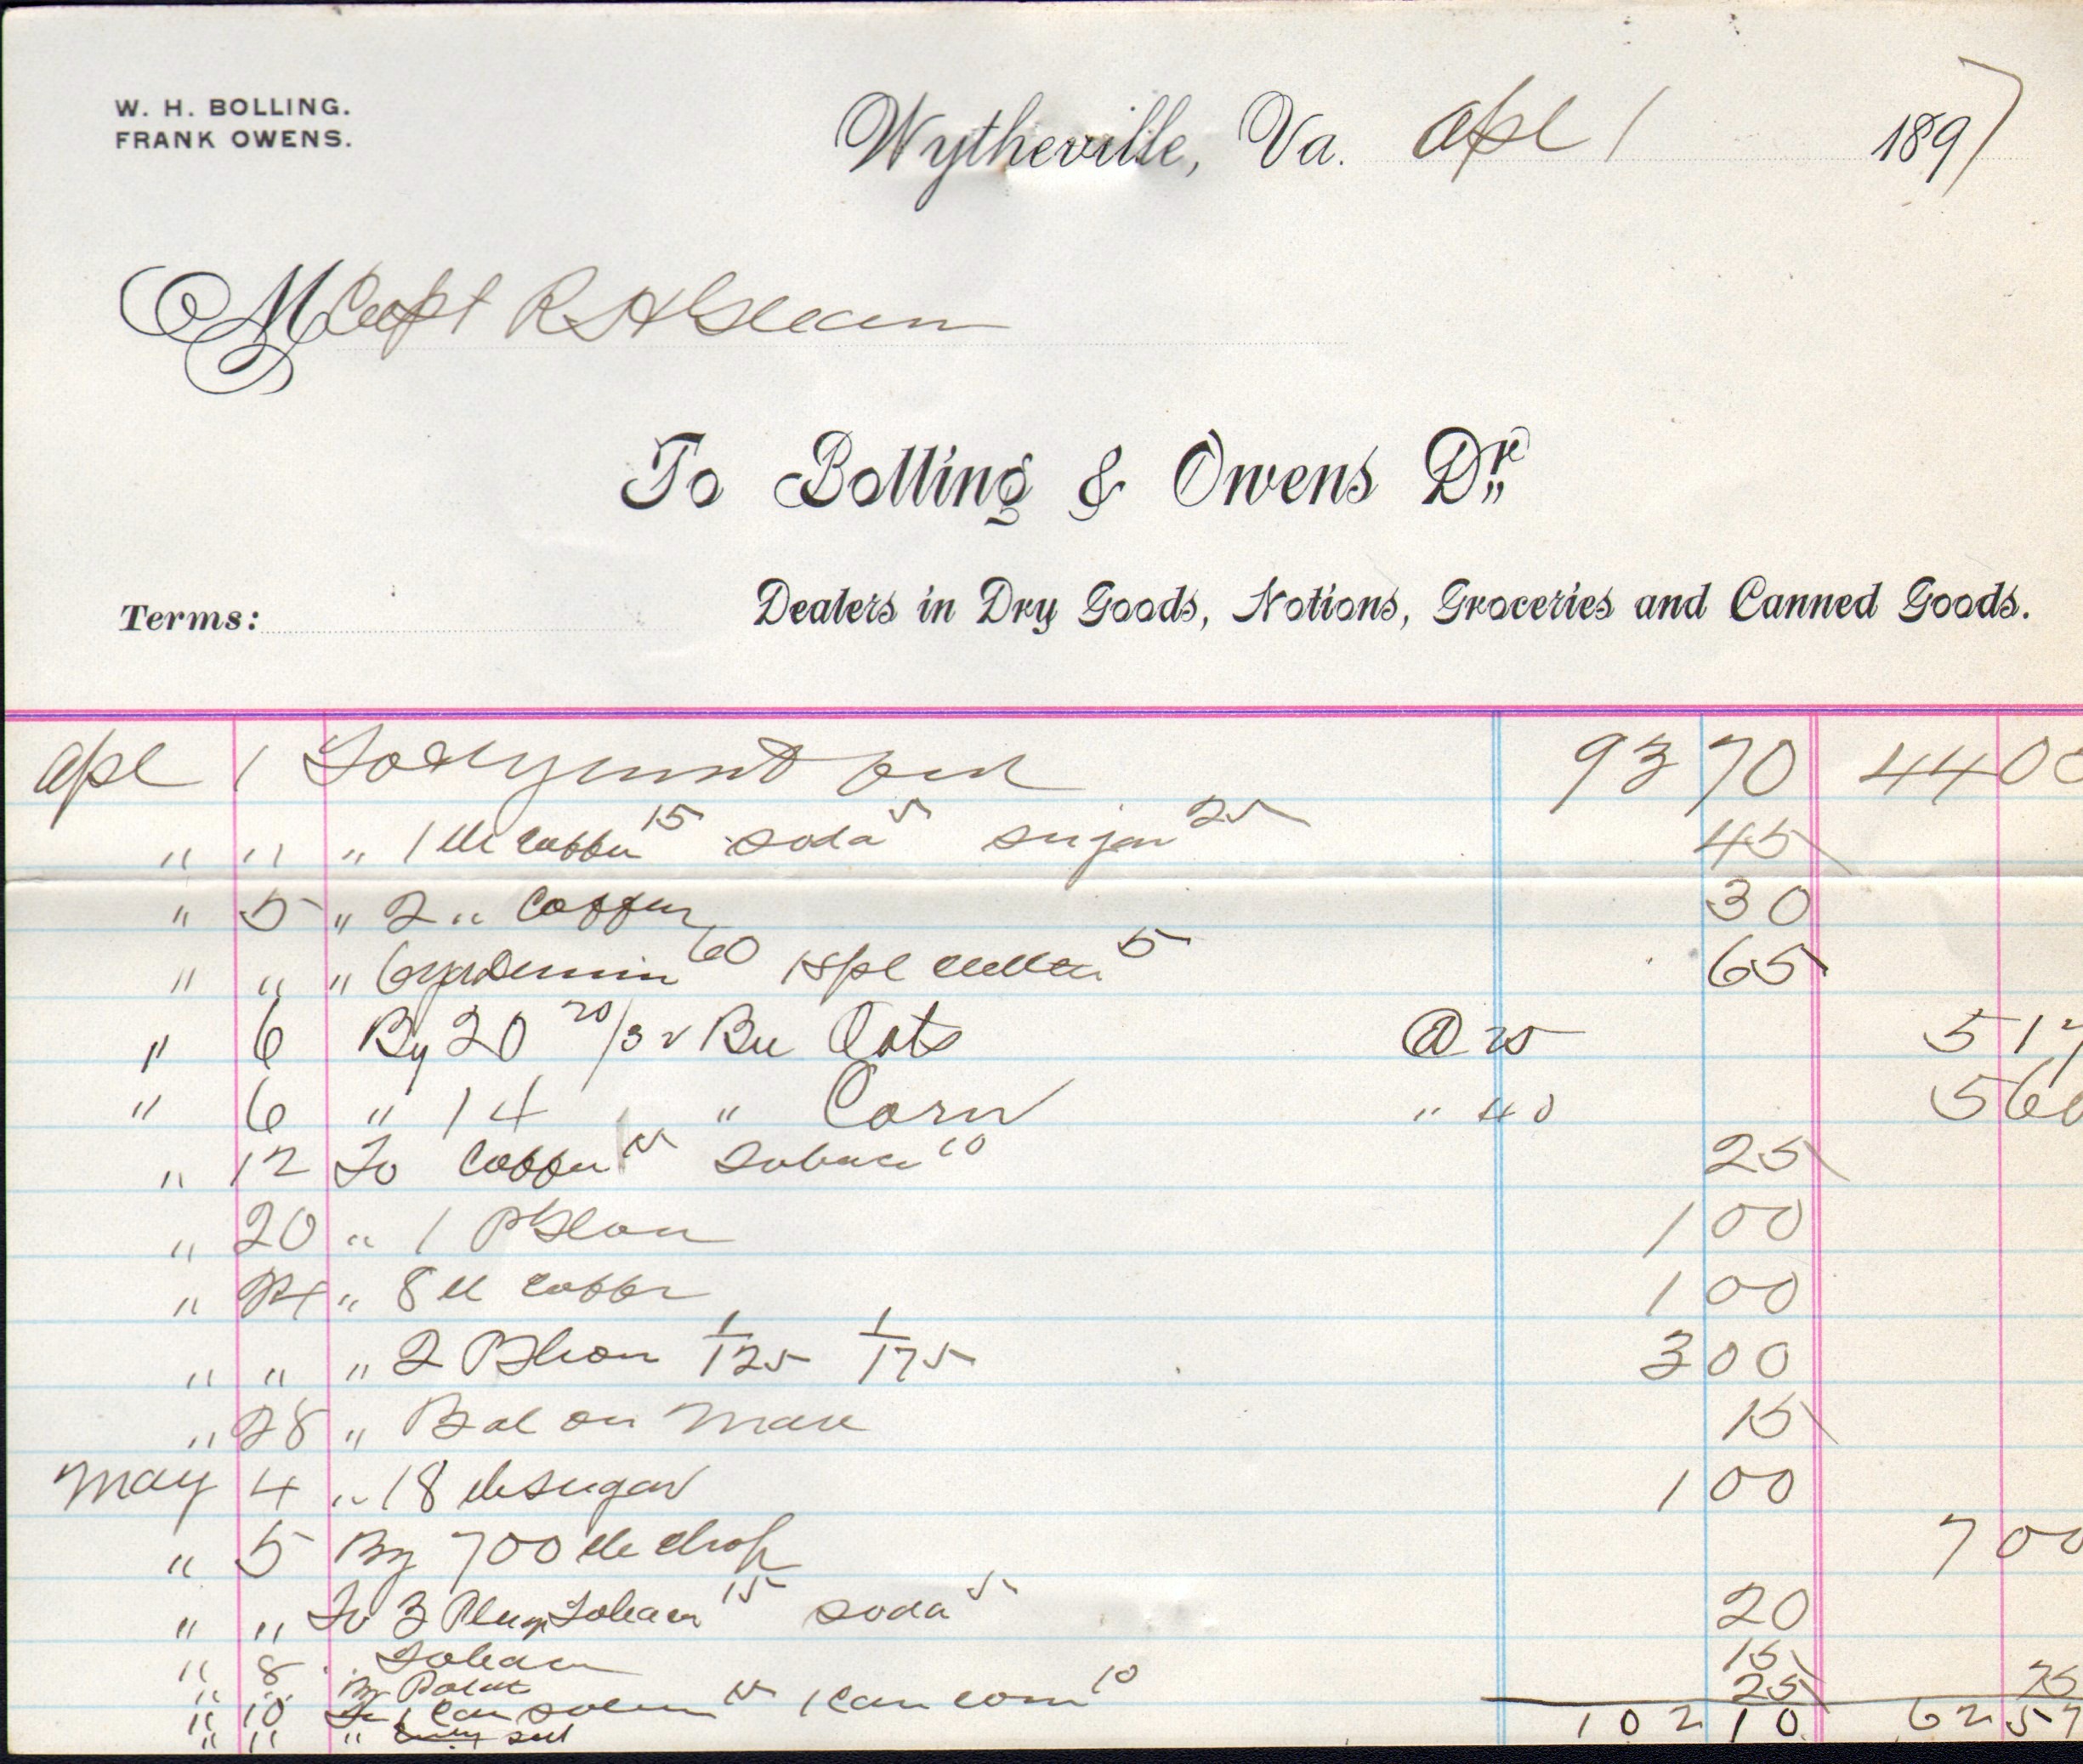 W. H. BOLLING.
FRANK OWENS.
Wytheville, Va. Apl 1 1897
M Capt R H Gleaves
To Bolling & Owens Dr.
Terms: Dealers in Dry Goods, Notions, Groceries and Canned Goods.
Apl 1 To 93 70 44 00
" " " 1 lb Coffee 15 soda 5 sugar 25 45
" 5 " 2 " Coffee 30
" " " 6 yds Denim 60 1 spl cotton 5 65
" 6 By 20 20/32 Bu Oats @ 25 5 17
" 6 " 14 " Corn " 40 5 60
" 12 To Coffee 15 Tobacco 10 25
" 20 " 1 1 00
" 24 " 8 lb Coffee 1 00
" " " 2 1/125 1/175 3 00
" 28 " Bal on 15
May 4 " 18 lb sugar 1 00
" 5 By 700 lb chop 7 00
" " To 3 Plugs Tobacco 15 soda 5 20
" 8 " Tobacco 15
" " By 75
" 10 To 1 Can 15 1 Can corn 10 25
" " "
102 10 62 57